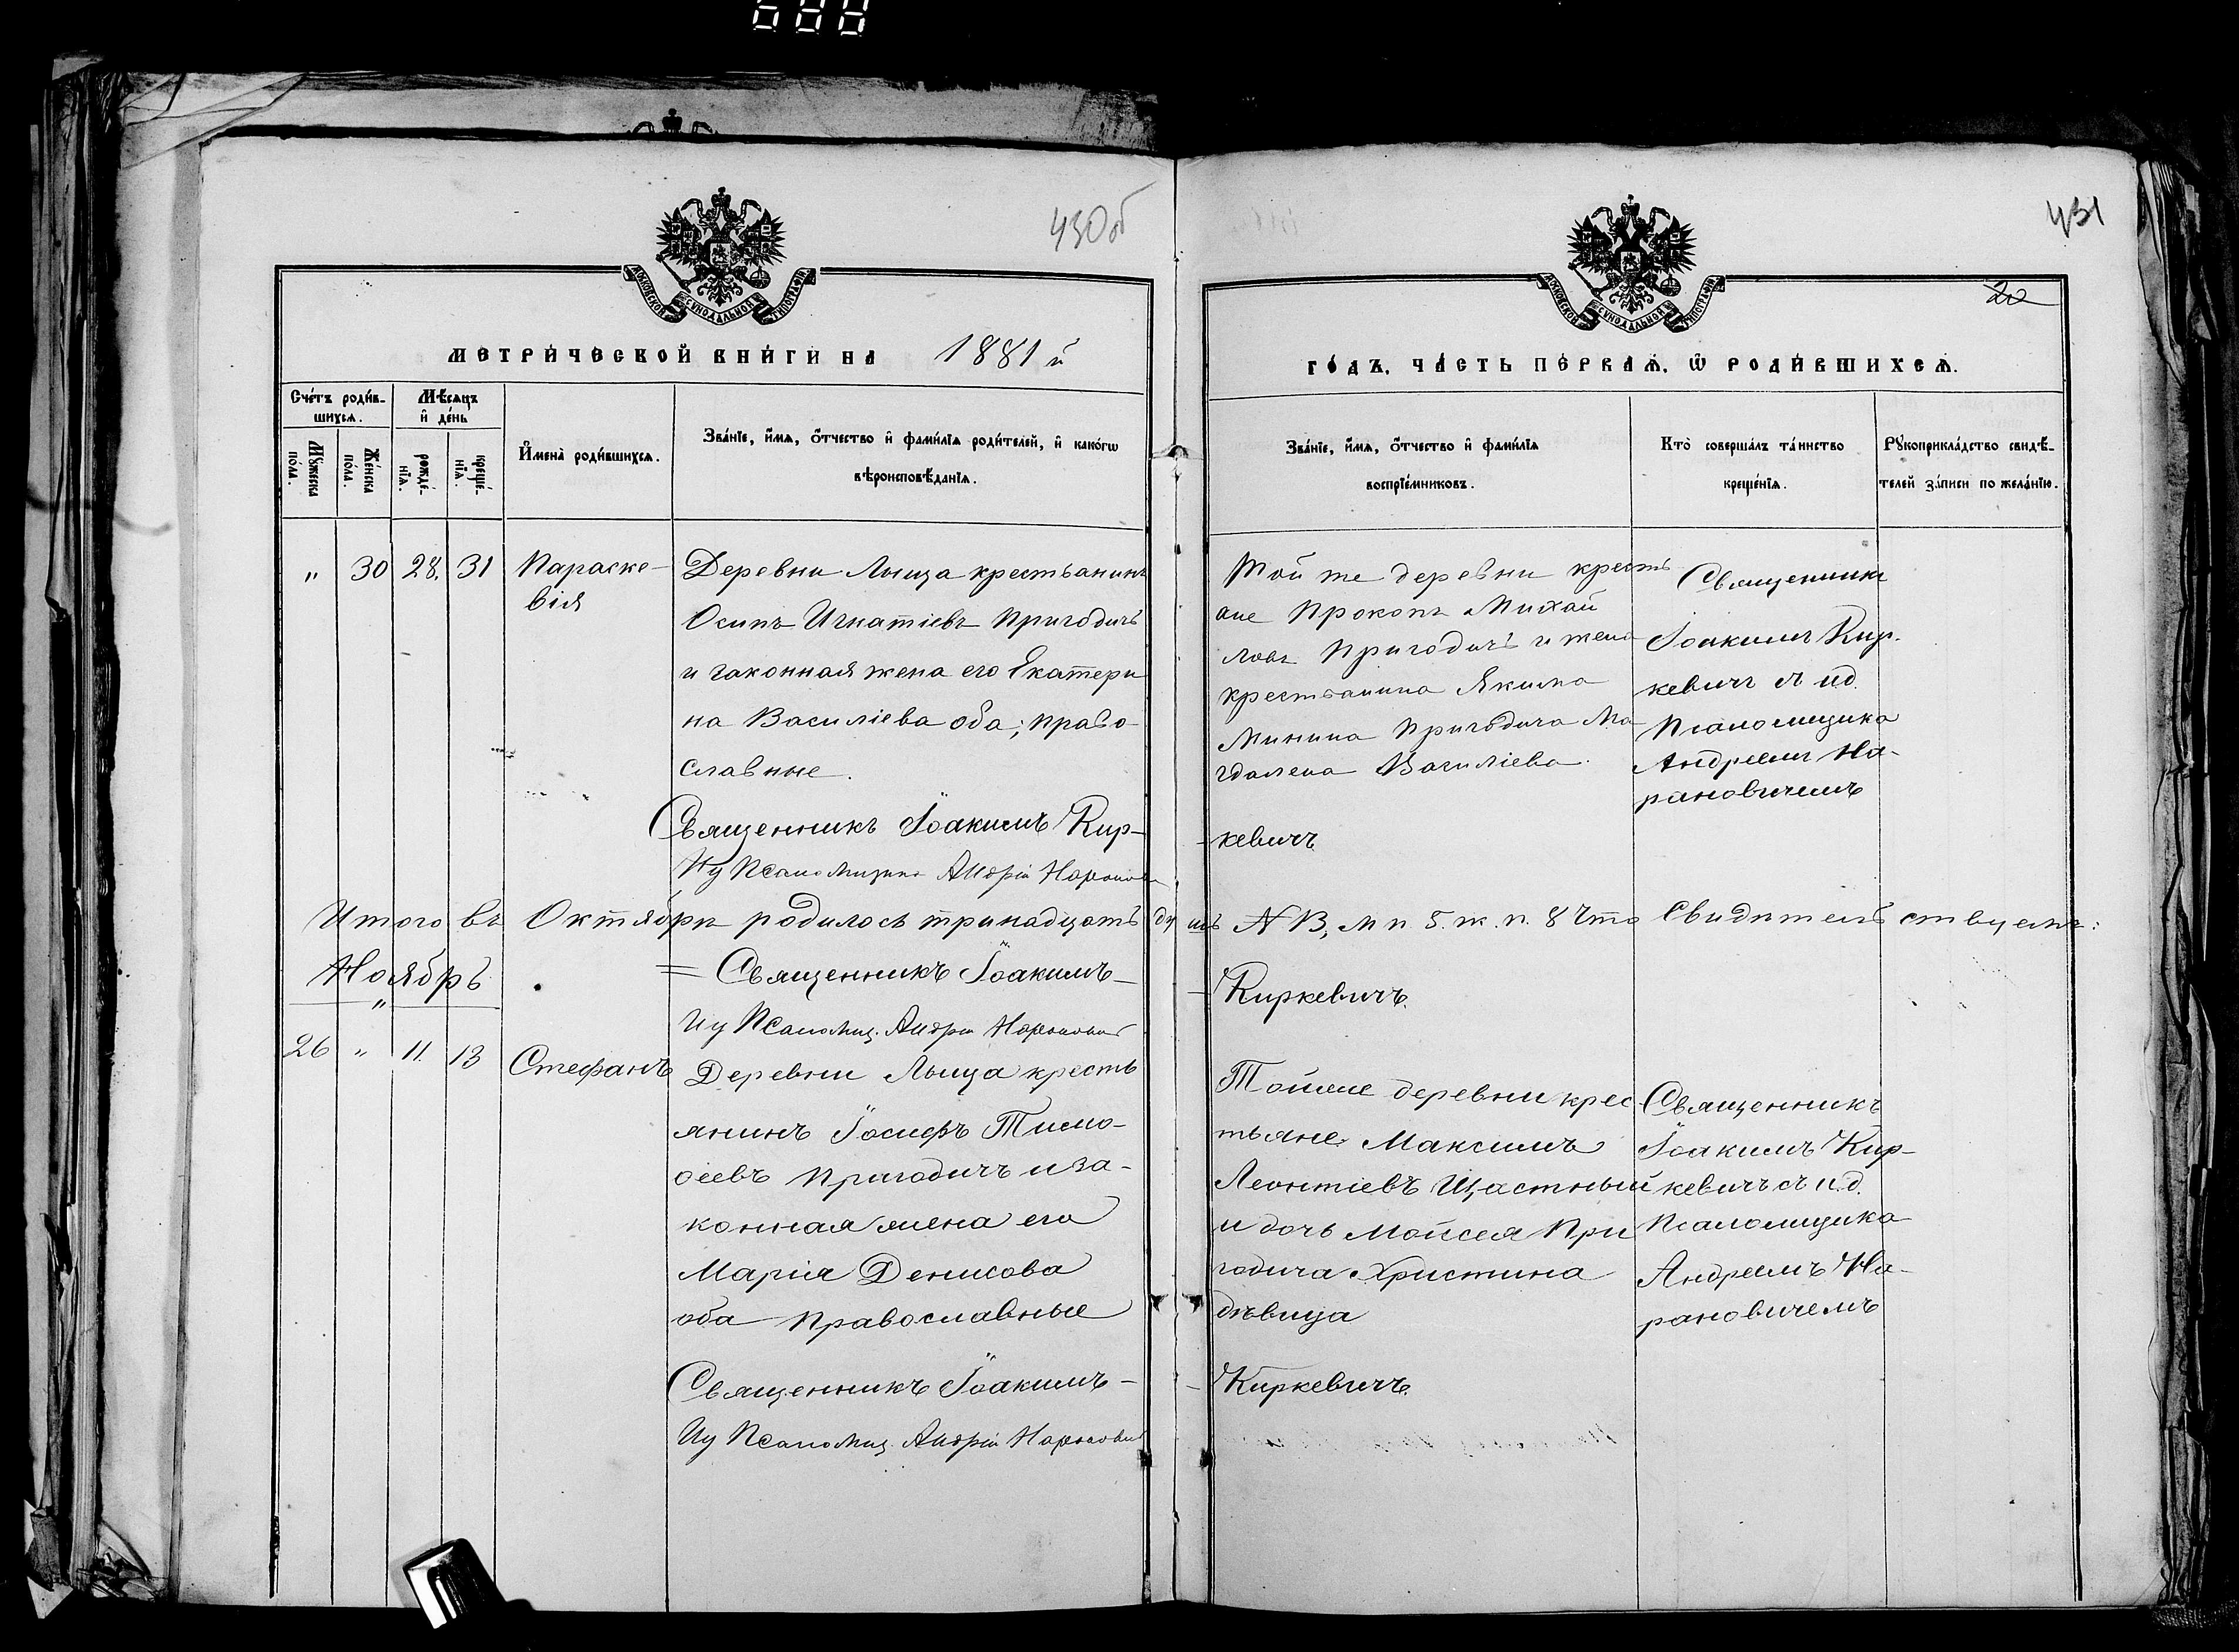 430об
431
20
МОСКОВСКОЙ СѴНОДАЛЬНОЙ ТИПОГРАФІИ
МОСКОВСКОЙ СѴНОДАЛЬНОЙ ТИПОГРАФІИ
МЕТРИ́ЧЕСКОЙ КНИ́ГИ НА 1881 й
ГО́ДЪ, ЧА́СТЬ ПЕ́РВАѦ, Ѡ҆ РОДИ́ВШИХСѦ.
Сче́тъ роди́в-
шихсѧ.
Мѣ́сѧцъ
и҆ де́нь
Мꙋ́жеска
по́ла.
Же́нска
по́ла.
рожде́-
нїѧ.
креще́-
нїѧ.
И҆мена̀ роди́вшихсѧ.
Зва́нїе, и҆́мѧ, ѻ҆́тчество и҆ фами́лїѧ роди́телей, и҆ како́гѡ
вѣроисповѣ́данїѧ.
Зва́нїе, и҆́мѧ, ѻ҆́тчество и҆ фами́лїѧ
воспрїе́мниковъ.
Кто̀ соверша́лъ та́инство
креще́нїѧ.
Рꙋкоприкла́дство свидѣ́-
телей за́писи по жела́нїю.
" 30 28. 31 Параске-
вія
Деревни Лыща крестьанинъ
Осипъ Игнатіевъ Пригодичъ
и законная жена его Екатери
на Василіева оба; право-
славные.
Той же деревни кресть
ане Прокопъ Михай
ловъ Пригодичъ и жена
крестьанина Якима
Минина Пригодича Ма-
гдалена Василіева.
Священникъ
Іоакимъ Кир-
кевичъ съ и.д.
Псаломщика
Андреемъ На-
рановичемъ
Священникъ Іоакимъ Кир-
-кевичъ
Иу Псаломщика Андрій Нарановичъ
Итого въ Октябрѣ родилось тринадцать душъ NB, м п. 5. ж. п. 8 Что Свидѣтельствуемъ:
Ноябрь
= Священникъ Іоакимъ-
-Киркевичъ.
Иу Псаломщ. Андрій Нарановичъ
26 " 11. 13 Стефанъ
Деревни Лыща кресть
янинъ Іосифъ Тимо-
ѳеевъ Пригодичъ и за-
конная жена его
Марія Денисова
оба православные
Тойже деревни крес-
тьяне Максимъ
Леонтіевъ Щастный
и дочь Мойсея При
годича Христина
дѣвица
Священникъ
Іоакимъ Кир-
кевичъ съ и.д.
Псаломщика
Андреемъ На-
рановичемъ
Священникъ Іоакимъ-
-Киркевичъ.
Иу Псаломщ. Андрій Нарановичъ